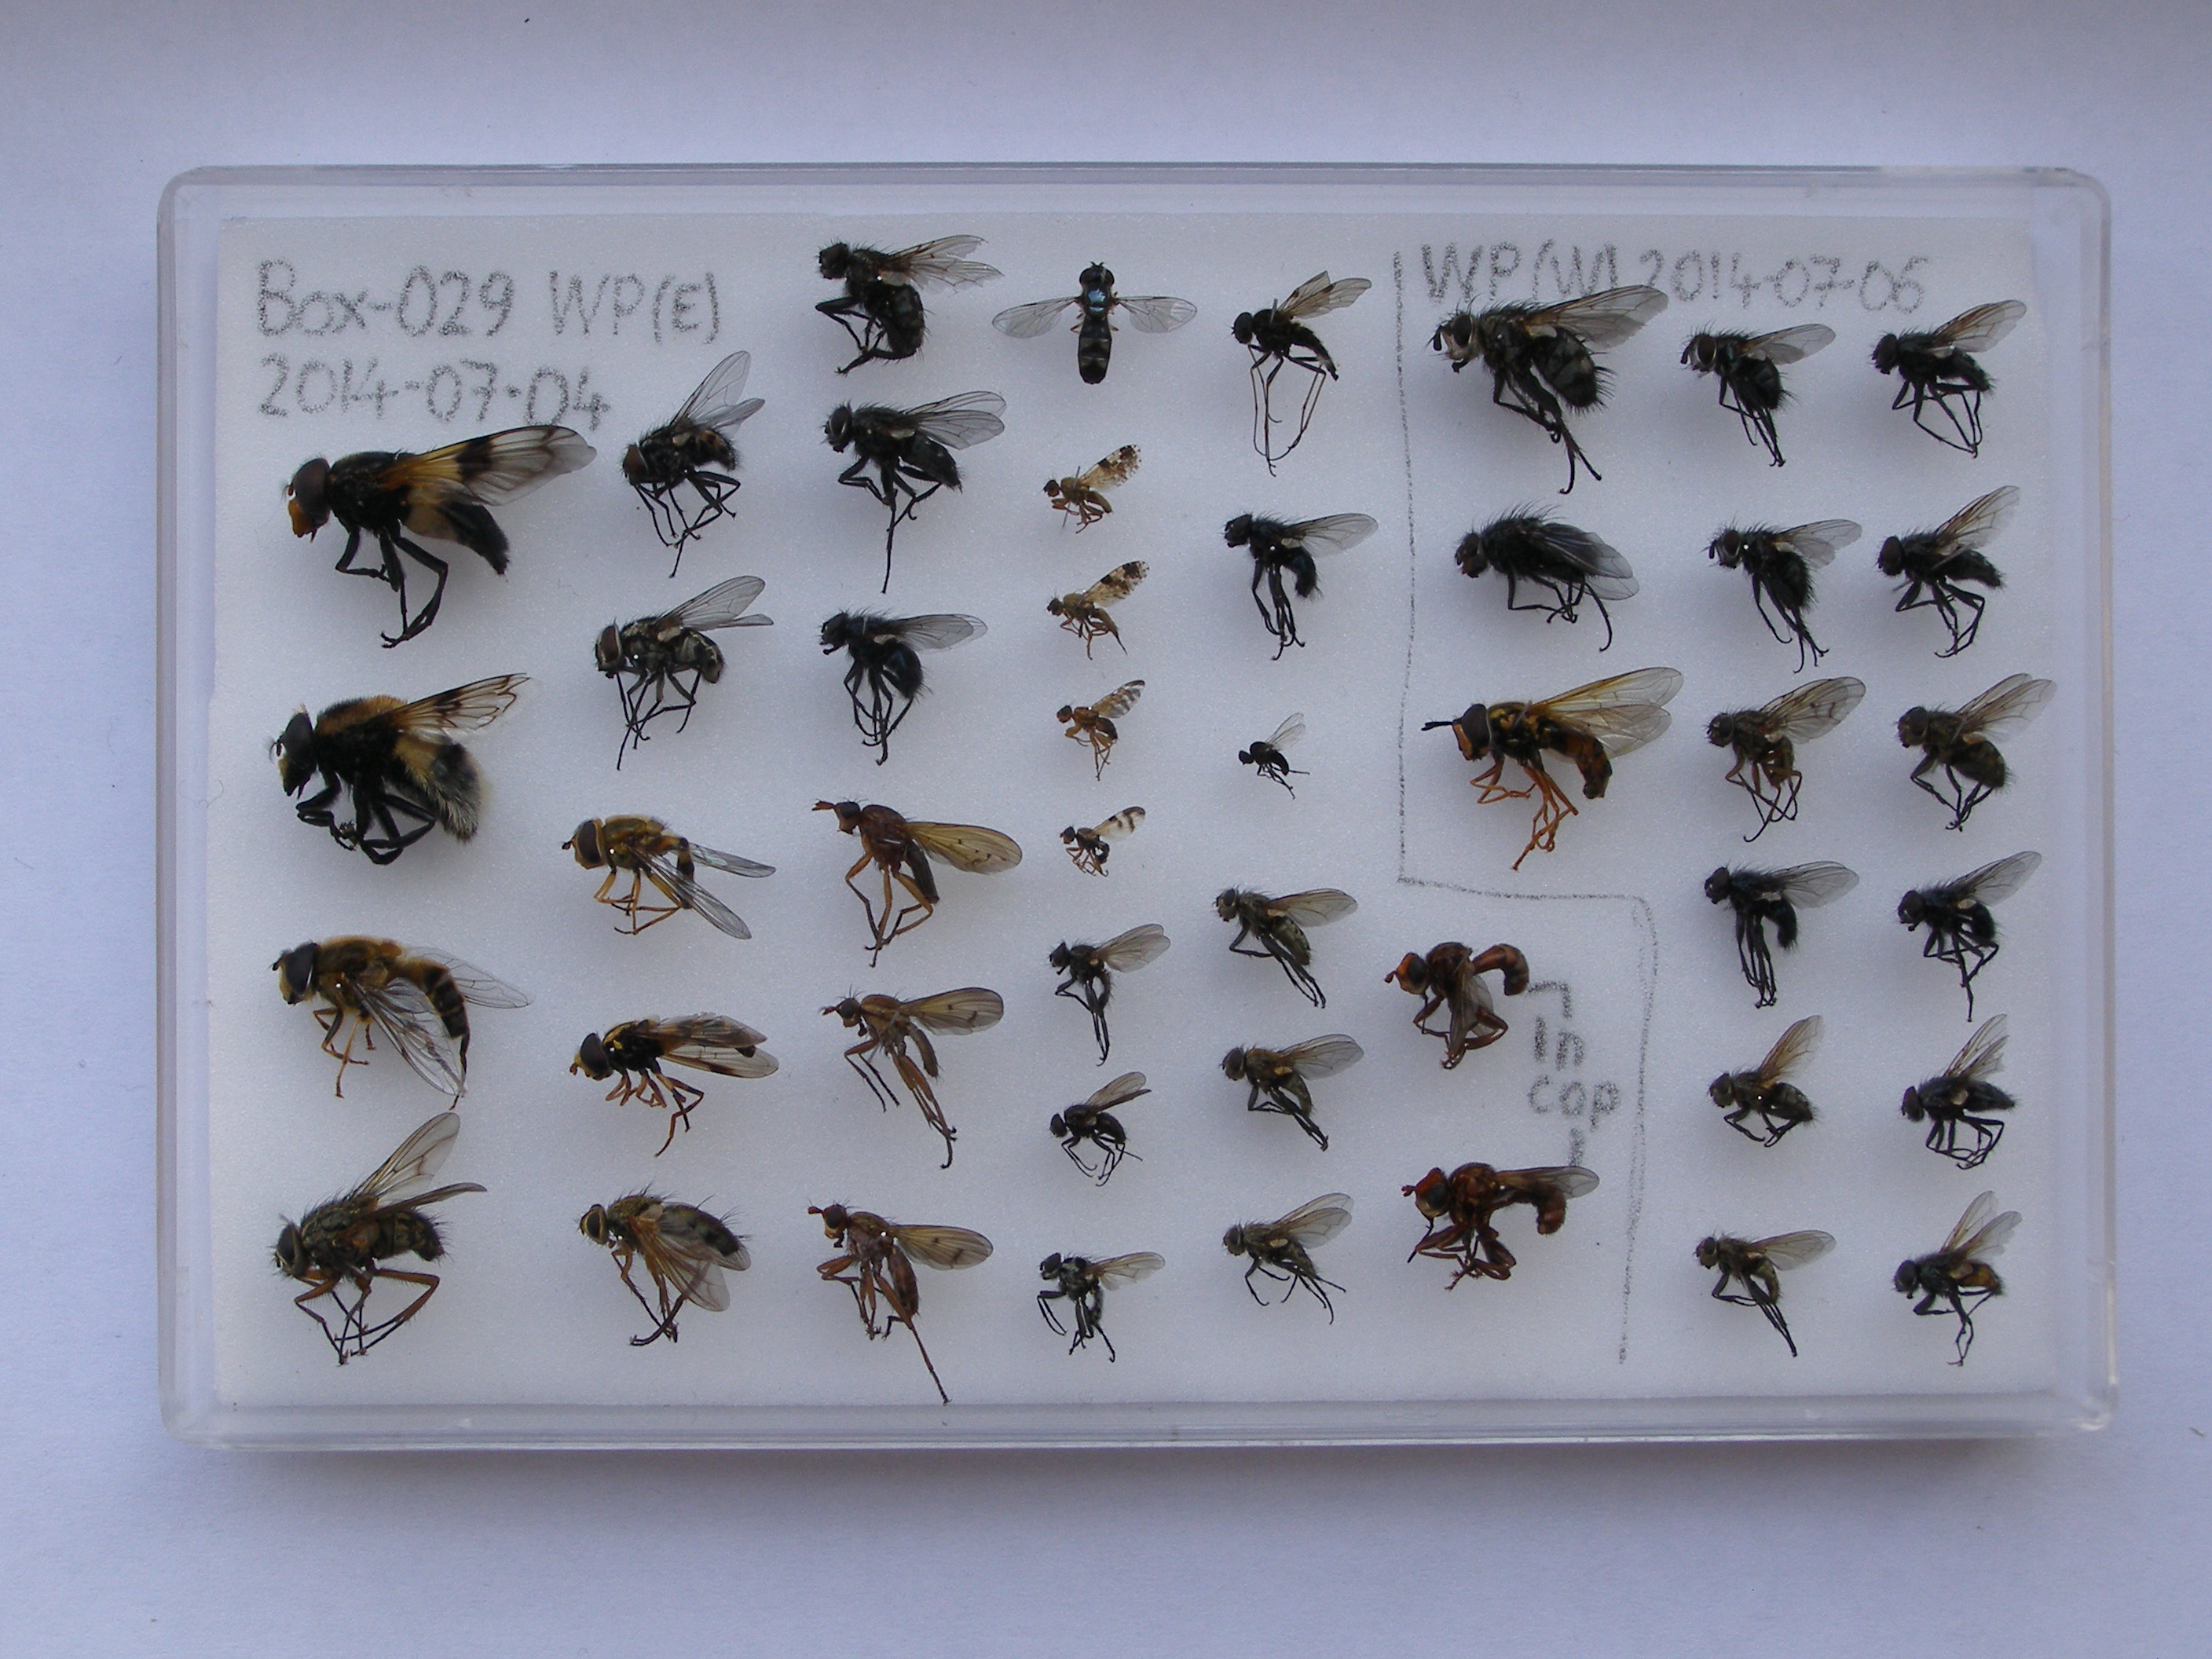 Box-029 WP(E)
2014-07-04
WP(W) 2014-07-06
in
cop